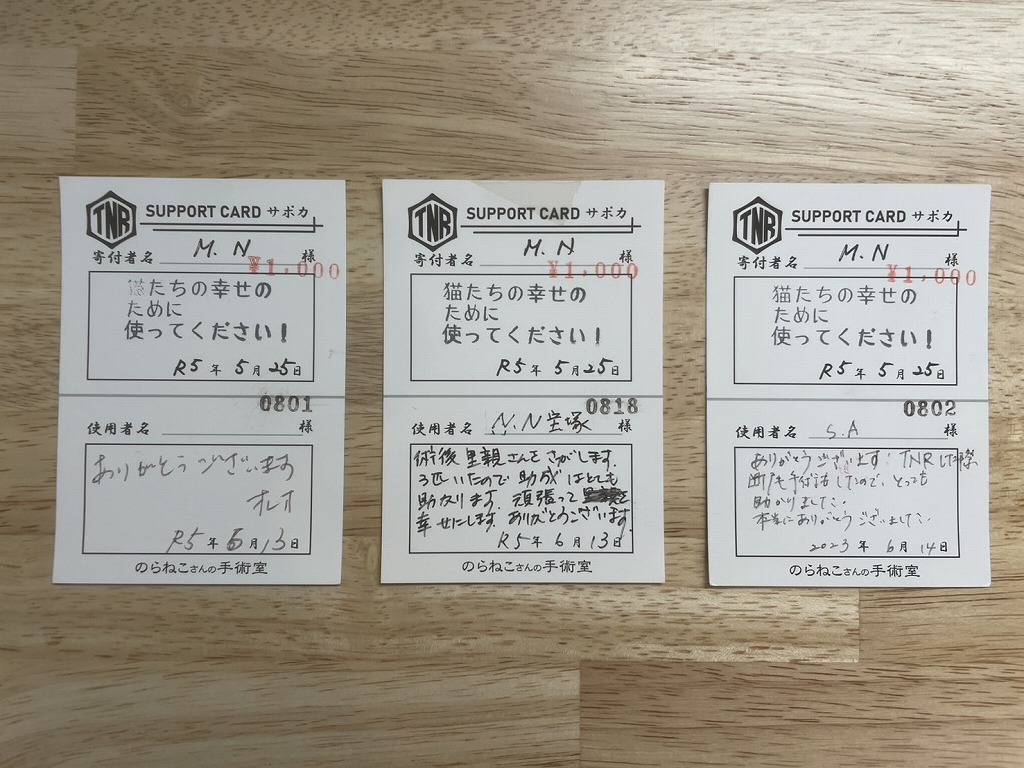 TNR
SUPPORT CARD サポカ
寄付者名 M.N 様
¥1,000
猫たちの幸せの
ために
使ってください!
R5年 5月25日
0801
使用者名 様
ありがとうございます
オレオ
R5年 6月13日
のらねこさんの手術室
TNR
SUPPORT CARD サポカ
寄付者名 M.N 様
¥1,000
猫たちの幸せの
ために
使ってください!
R5年 5月25日
0818
使用者名 N.N 宝塚 様
術後 里親さんをさがします。
3匹いたので 助成はとても
助かります。頑張って
幸せにします。ありがとうございます。
R5年 6月13日
のらねこさんの手術室
TNR
SUPPORT CARD サポカ
寄付者名 M.N 様
¥1,000
猫たちの幸せの
ために
使ってください!
R5年 5月25日
0802
使用者名 S.A 様
ありがとうございます! TNRした際
手付 したので、とっても
助かりました。
本当にありがとうございました。
2023年 6月 14日
のらねこさんの手術室